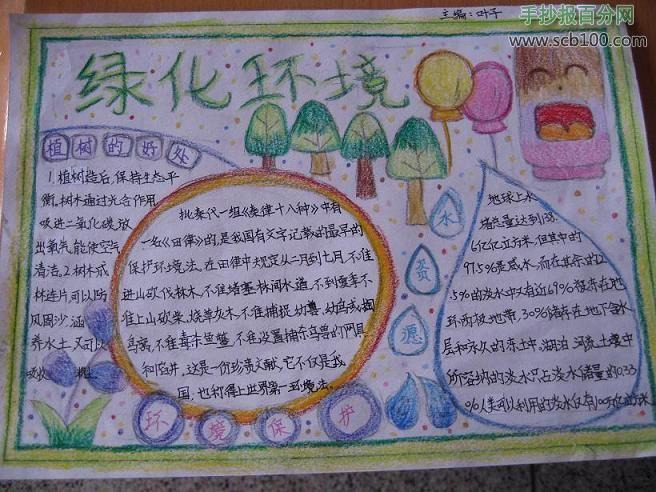 主编:叶子
手抄报百分网
www.scb100.com
绿化环境
植树的好处
1.植树造后,保持生态平
衡,树木通过光合作用
吸进二氧化碳,放
出氧气,能使空气
清洁。2.树木成
林连片可以防
风固沙,涵
养水土,又可以
吸收
批秦代一组《秦律十八种》中有
一名《田律》的,是我国有文字记载的最早的
保护环境法,在田律中规定从二月到七月,不准
进山砍伐林木,不准堵塞林间水道,不到夏季不
准上山砍柴,烧草灰木,不准捕捉幼兽,幼鸟或掏
鸟窝,不准毒杀鱼鳖,不准设置捕杀鸟兽的网具
和陷井,这是一份珍贵文献,它不仅是我
国,也称得上世界第一环境法。
环境保护
水资源
地球上水
储总量达到138.
6亿亿立方米,但其中的
97.5%是咸水,而在其余的2
.5%的淡水中又有近69%程存在地
环两极地带,30%储存在地下含水
层和永久的冻土中,湖泊河流土壤中
所容纳的淡水只占淡水储量的0.33
%人类可以利用的淡水仅有